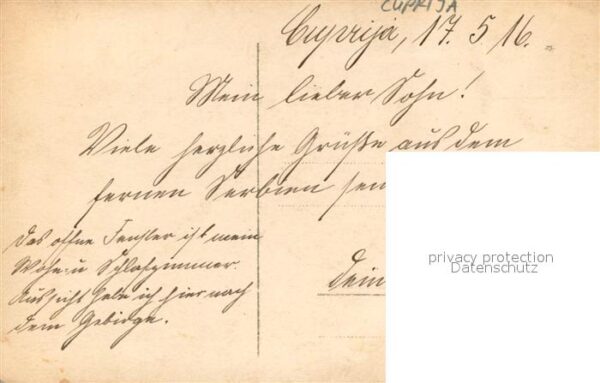 CUPRIJA
Cuprija, 17. 5. 16.
Mein lieber Sohn!
Viele herzliche Grüße aus dem
fernen Serbien sen
Dein
Das offne Fenster ist mein
Wohn u Schlafzimmer.
Aussicht habe ich hier nach
dem Gebirge.
privacy protection
Datenschutz